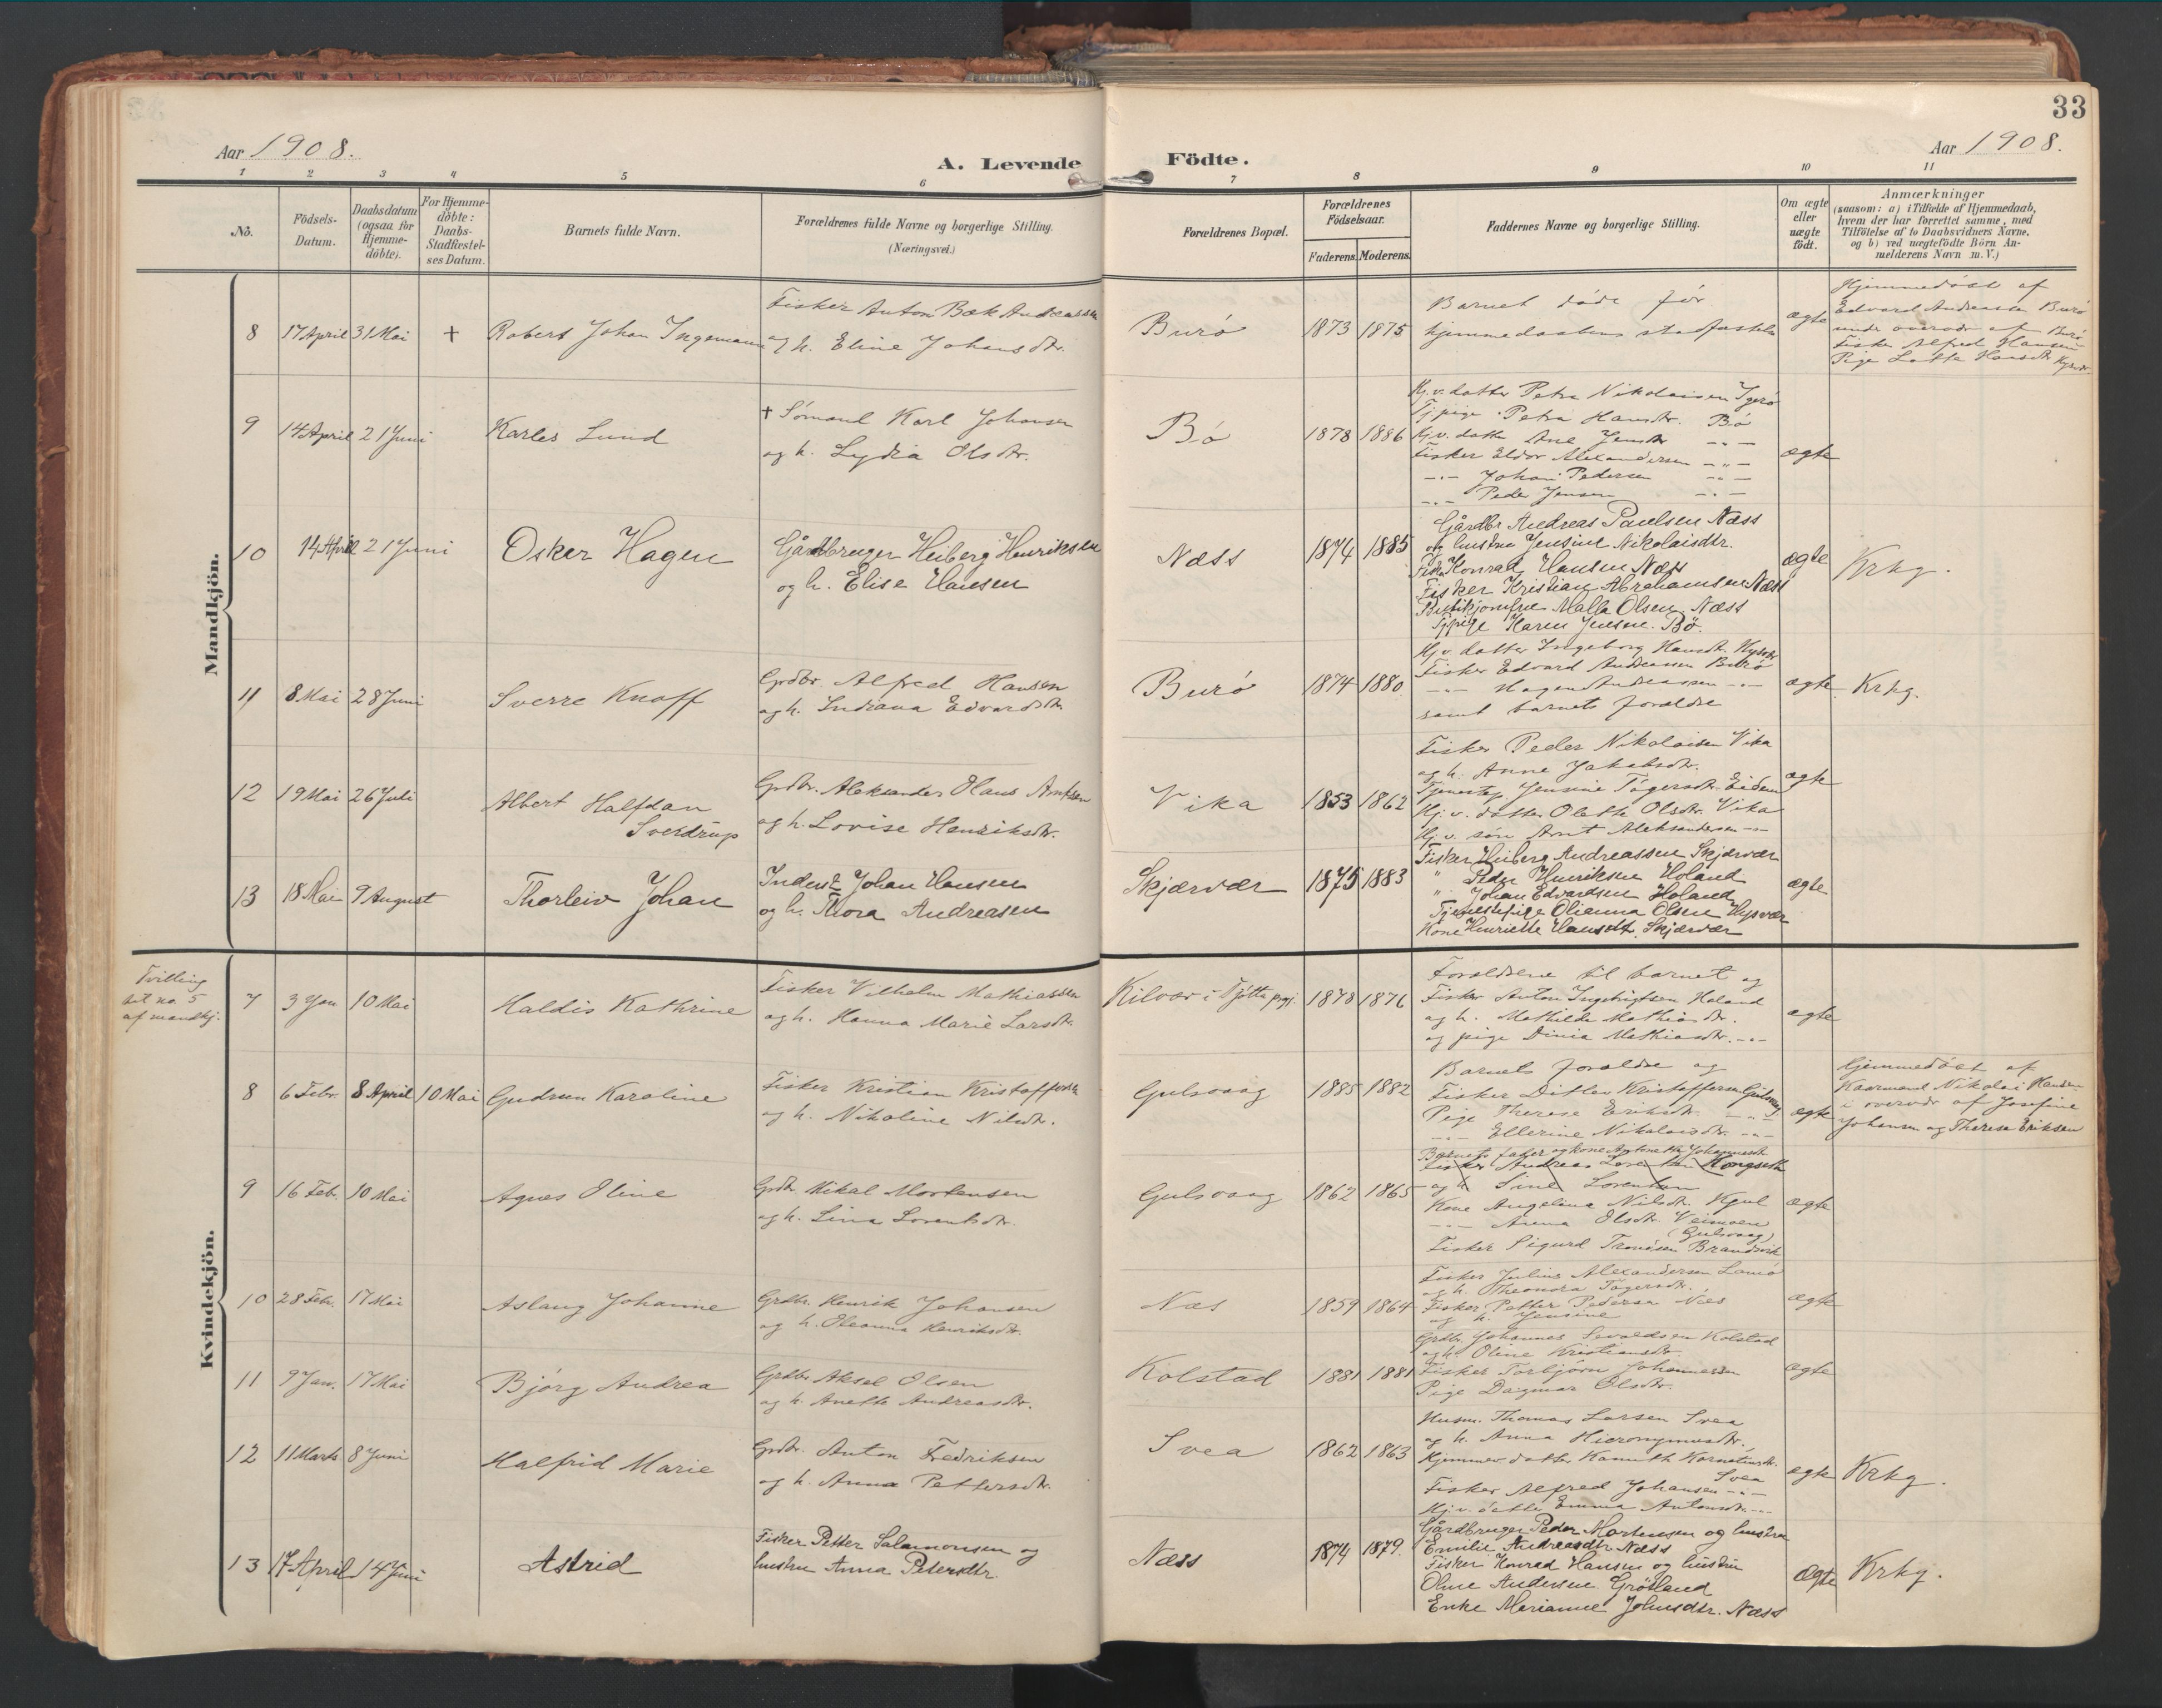 33
Aar 1908.
A. Levende Födte.
Aar 1908.
1 2 3 4 5 6 7 8 9 10 11
No.
Födsels-Datum.
Daabsdatum (ogsaa for Hjemme-döbte).
For Hjemme-döbte: Daabs-Stadfæstel-ses Datum.
Barnets fulde Navn.
Forældrenes fulde Navne og borgerlige Stilling. (Næringsvei.)
Forældrenes Bopæl.
Forældrenes Födselsaar.
Faderens. Moderens.
Faddernes Navne og borgerlige Stilling.
Om ægte eller uægte födt.
Anmærkninger
(saasom: a) i Tilfælde af Hjemmedaab,
hvem der har forrettet samme, med
Tilföielse af to Daabsvidners Navne,
og b) ved uægtefödte Börn An-
melderens Navn m. V.)
Mandkjön.
8 17 April 31 Mai + Robert Johan Ingemann
Fisker Anton Bæk Andreassen
og h. Eline Johansdtr.
Burö 1873 1875
Barnet döde för
hjemmedaabens stadfæstelse
ægte
Hjemmedöbt af
Edvard Andreassen Burö
under overvær af
Fisker Alfred Hansen Burö
Pige Lotte Hansdtr.
9 14 April 21 Juni Karles Lund
+ Sömand Karl Johansen
og h. Lydia Olsdtr.
Bö 1878 1886
Hj.v. datter Petra Nikolaisen Igerö
Tj.pige Petra Hansdtr. Bö
Hj.v. datter Ane Jensdtr. -"-
Fisker Eldor Alexandersen -"-
-"- Johan Pedersen -"-
-"- Peder Jensen -"-
ægte
10 14 April 21 Juni Osker Hagen
Gårdbruger Heiberg Henriksen
og h. Elise Hansen
Næss 1874 1885
Gårdbr Andreas Paulsen Næss
og hustru Jensine Nikolaisdtr.
Fisker Konrad Hansen Næss
Fisker Kristian Abrahamsen Næss
Butikjomfru Malla Olsen Næss
Tjpige Karen Jensen. Bö.
ægte Krkg.
11 8 Mai 28 Juni Sverre Knoff
Grdbr. Alfred Hansen
og h. Indiana Edvardsdtr.
Burö 1874 1880
Hj.v. datter Ingeborg Hansdtr.
Fisker Edvard Andreassen Burö
-"- Hagen Andreassen -"-
samt barnets forældre
ægte Krkg.
12 19 Mai 26 Juli Albert Halfdan
Sverdrup
Grdbr. Aleksander Olaus Arntsen
og h. Lovise Henriksdtr.
Vika 1853 1862
Fisker Peder Nikolaisen Vika
og h. Anne Jakobsdtr.
Tjenestep. Jensine Tögersdtr. Eidem
Hj.v. datter Olette Olsdtr. Vika
Hj.v. sön Arnt Aleksandersen -"-
ægte
13 18 Mai 9 August Thorleiv Johan
Inderst Johan Hansen
og h. Thora Andreasen
Skjærvær 1875 1883
Fisker Heiberg Andreassen Skjærvær
" Peder Henriksen Holand
" Johan Edvardsen Holand
Tjenestepige Olianna Olsen Hysvær
Kone Henriette Hansdtr. Skjærvær
ægte
Kvindekjön.
Tvilling
til no. 5
af mandkj.
7 3 Jan 10 Mai Haldis Kathrine
Fisker Vilhelm Mathiassen
og h. Hanna Marie Larsdtr.
Kilvær i Tjötta prgj. 1878 1876
Forældrene til barnet og
Fisker Anton Ingebrigtsen Holand
og h. Mathilde Mathiasdtr.
og pige Dinia Mathiasdtr. -"-
ægte
8 6 Febr. 8 April 10 Mai Gudrun Karoline
Fisker Kristian Kristoffersen
og h. Nikoline Nilsdtr.
Gulsvaag 1885 1882
Barnets forældre og
Fisker Ditlev Kristoffersen Gulsvaag
Pige Therese Eriksdtr. -"-
-"- Ellerine Nikolaisdtr. -"-
ægte
Hjemmedöbt af
Kaarmand Nikolai Hansen
i overvær af Josefine
Johansen og Therese Eriksen
9 16 Feb. 10 Mai Agnes Oline
Grdbr. Mikal Mortensen
og h. Lina Lorentsdtr.
Gulsvaag 1862 1865
Barnets fader og kone Antonette Johannesdtr.
Fisker Andreas Lorentsen Kongseth
og h. Sine Lorentsen
Kone Angelina Nilsdtr. Kjul
-"- Anna Olsdtr. Veimoen
(Gulsvaag)
Fisker Sigurd Tronesen Brandsvik
ægte
10 28 Feb. 17 Mai Aslaug Johanne
Grdbr. Henrik Johansen
og h. Oleanna Henriksdtr.
Næs 1859 1864
Fisker Julius Alexandersen Lamö
og h. Theonora Tögersdtr.
Fisker Petter Pedersen Næs
og h. Jensine
ægte
11 9 Jan. 17 Mai Björg Andrea
Grdbr. Aksel Olsen
og h. Anette Andreasdtr.
Kolstad 1881 1881
Grdbr. Johannes Sevaldsen Kolstad
og h. Oline Kristiansdtr.
Fisker Torbjörn Johannessen
Pige Dagmar Olsdtr.
ægte
12 11 Marts 8 Juni Halfrid Marie
Grdbr. Anton Fredriksen
og h. Anna Pettersdtr.
Svea 1862 1863
Husm. Thomas Larsen Svea
og h. Anna Hieronymusdtr.
Hjemmev. datter
Svea
Fisker Alfred Johansen -"-
Hj.v. datter Emma Antonsdtr. -"-
ægte Krkg.
13 17 April 14 Juni Astrid
Fisker Petter Salamonsen og
hustru Anna Petersdtr.
Næss 1874 1879.
Gårdbruger Peder Mortensen og hustru
Emilie Andreasdtr. Næss
Fisker Konrad Hansen og hustru
Oline Andersen Grötland
Enke Marianne Johnsdtr. Næss
Ægte Krkg.